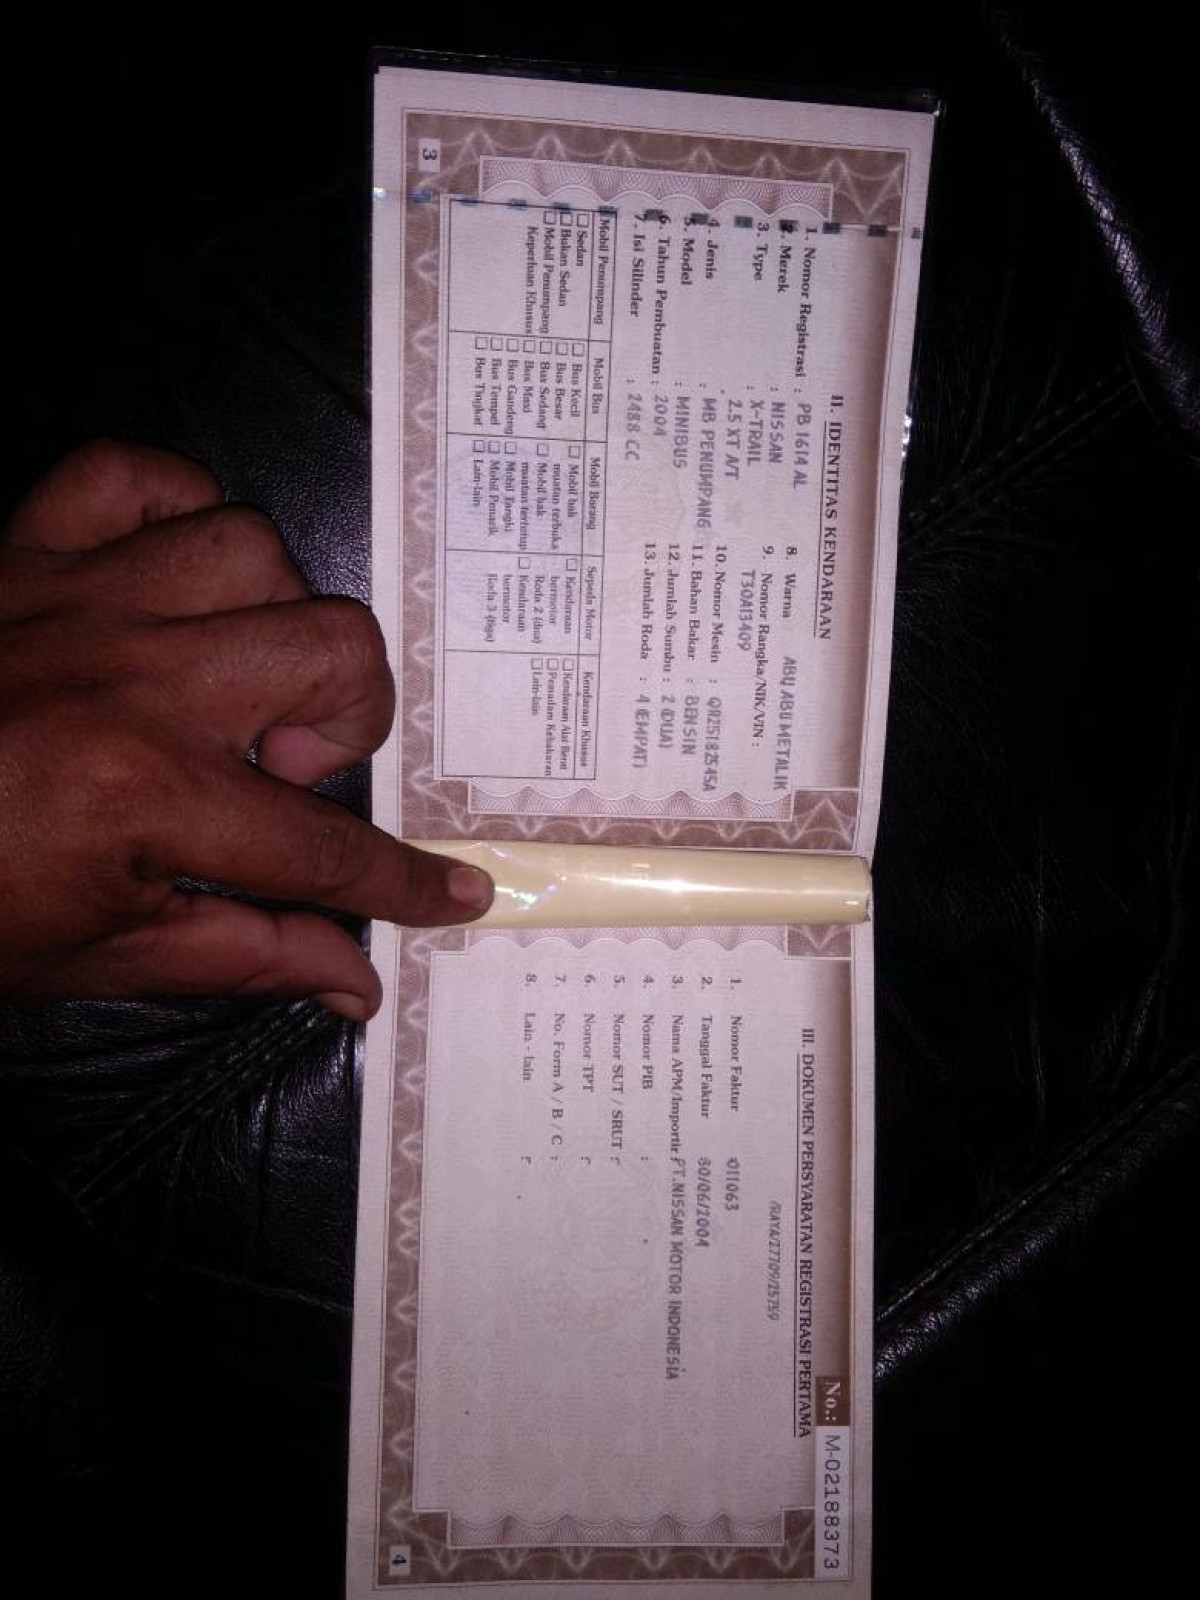 II. IDENTITAS KENDARAAN
1. Nomor Registrasi : PB 1614 AL
2. Merek : NISSAN
3. Type : X-TRAIL
2.5 XT A/T
4. Jenis : MB PENUMPANG
5. Model : MINIBUS
6. Tahun Pembuatan : 2004
7. Isi Silinder : 2488 CC
8. Warna ABU ABU METALIK
9. Nomor Rangka/NIK/VIN :
T30A13409
10. Nomor Mesin : QR25182545A
11. Bahan Bakar : BENSIN
12. Jumlah Sumbu : 2 (DUA)
13. Jumlah Roda : 4 (EMPAT)
Mobil Penumpang
Sedan
Bukan Sedan
Mobil Penumpang
Keperluan Khusus
Mobil Bus
Bus Kecil
Bus Besar
Bus Sedang
Bus Maxi
Bus Gandeng
Bus Tempel
Bus Tingkat
Mobil Barang
Mobil bak
muatan terbuka
Mobil bak
muatan tertutup
Mobil Tangki
Mobil Penarik
Lain-lain
Sepeda Motor
Kendaraan
bermotor
Roda 2 (dua)
Kendaraan
bermotor
Roda 3 (tiga)
Kendaraan Khusus
Kendaraan Alat Berat
Pemadam Kebakaran
Lain-lain
3
No.: M-02188373
III. DOKUMEN PERSYARATAN REGISTRASI PERTAMA
1. Nomor Faktur : 011063
2. Tanggal Faktur 30/06/2004
3. Nama APM/Importir PT.NISSAN MOTOR INDONESIA
4. Nomor PIB :
5. Nomor SUT / SRUT :
6. Nomor TPT :
7. No. Form A / B / C :
8. Lain - lain :
4